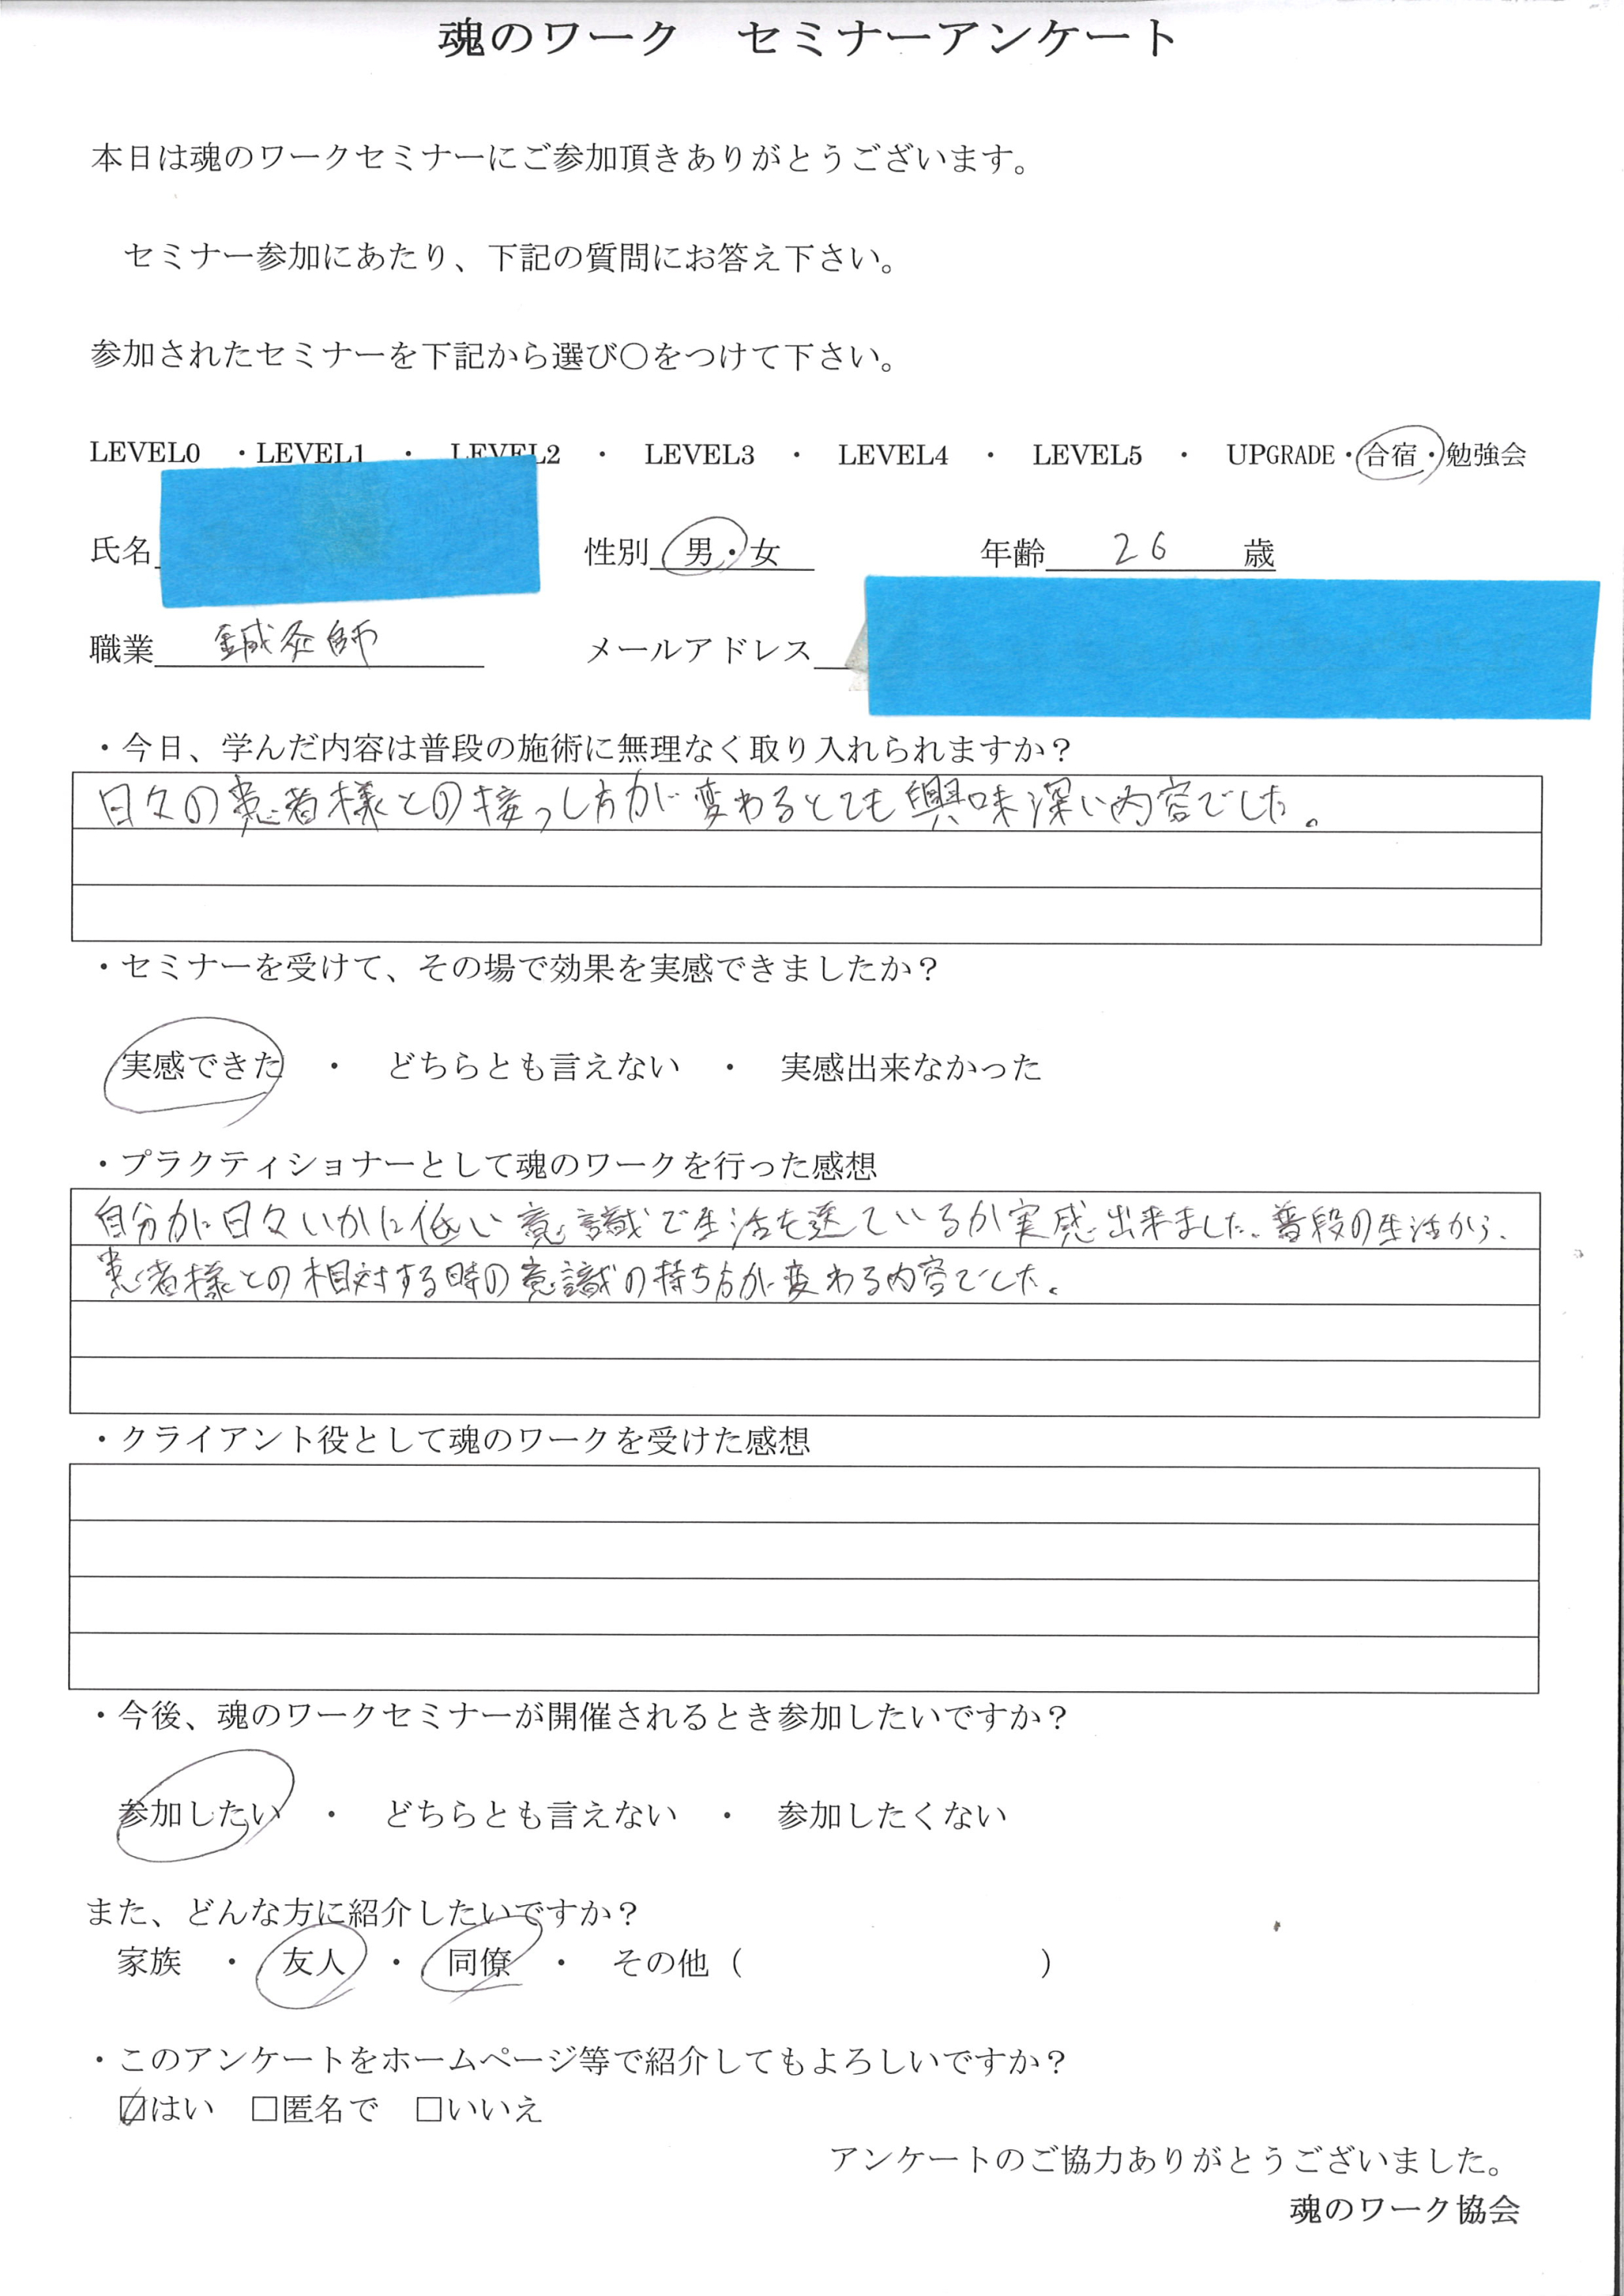 魂のワーク　セミナーアンケート
本日は魂のワークセミナーにご参加頂きありがとうございます。
セミナー参加にあたり、下記の質問にお答え下さい。
参加されたセミナーを下記から選び〇をつけて下さい。
LEVEL0　・LEVEL1　・　LEVEL2　・　LEVEL3　・　LEVEL4　・　LEVEL5　・　UPGRADE・合宿・勉強会
氏名　性別　男・女　年齢　26　歳
職業　鍼灸師　メールアドレス
・今日、学んだ内容は普段の施術に無理なく取り入れられますか？
日々の患者様との接っし方が変わるとても興味深い内容でした。
・セミナーを受けて、その場で効果を実感できましたか？
実感できた　・　どちらとも言えない　・　実感出来なかった
・プラクティショナーとして魂のワークを行った感想
自分が日々いかに低い意識で生活を送ているか実感出来ました。普段の生活から、
患者様との相対する時の意識の持ち方が変わる内容でした。
・クライアント役として魂のワークを受けた感想
・今後、魂のワークセミナーが開催されるとき参加したいですか？
参加したい　・　どちらとも言えない　・　参加したくない
また、どんな方に紹介したいですか？
家族　・　友人　・　同僚　・　その他（　　　　　　　　　）
・このアンケートをホームページ等で紹介してもよろしいですか？
☑はい　□匿名で　□いいえ
アンケートのご協力ありがとうございました。
魂のワーク協会